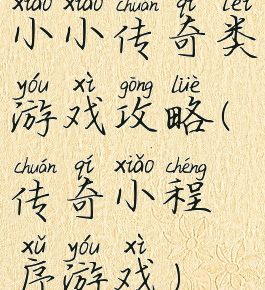 xiǎo xiǎo chuán qí lèi
小小传奇类
yóu xì gōng lüè
游戏攻略(
chuán qí xiǎo chéng
传奇小程
xǔ yóu xì
序游戏)